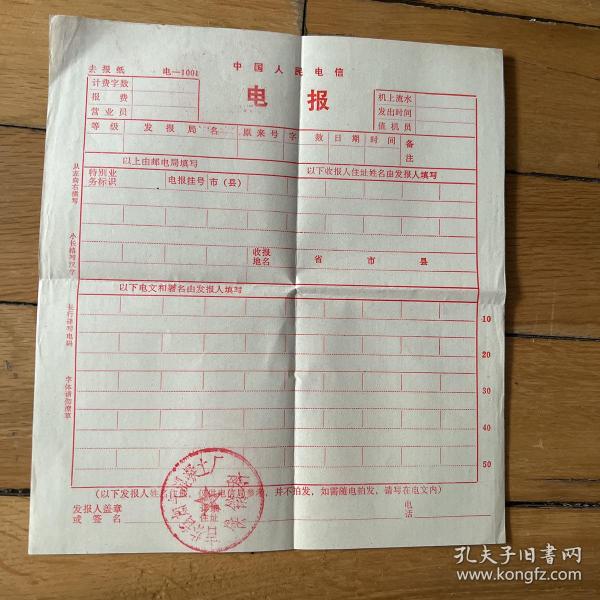 中国人民电信
去报纸 电—1004
电报
计费字数
报费
营业员
机上流水
发出时间
值机员
等级 发报局名 原来号 字数 日期 时间 备注
以上由邮电局填写
以下收报人住址姓名由发报人填写
特别业务标识 电报挂号 市（县）
收报地名 省 市 县
以下电文和署名由发报人填写
10
20
30
40
50
从左向右横写
小长格写汉字
长行译写电码
（以下发报人姓名住址，仅供电信局参考，并不拍发，如需随电拍发，请写在电文内）
发报人盖章或签名
住址
电话
孔夫子旧书网
www.kongfz.com